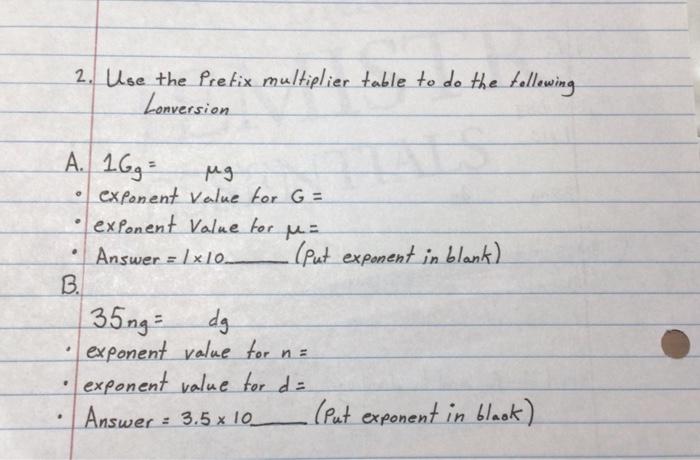 2. Use the Prefix multiplier table to do the following
Conversion
A. 1Gg = μg
• exponent value for G =
• exponent Value for μ =
• Answer = 1x10____ (Put exponent in blank)
B.
35ng = dg
• exponent value for n =
• exponent value for d =
• Answer = 3.5 x 10____ (Put exponent in blank)